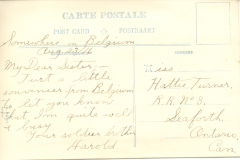 CARTE POSTALE
POST CARD
POSTKAART
Somewhere in Belgium
My Dear Sister,—
Just a little
souvineer from Belgium
to let you know
that, I'm quite well
& busy
Your soldier brother
Harold
Miss
Hattie Turner,
R.R. No 3,
Seaforth,
Ontario,
Can